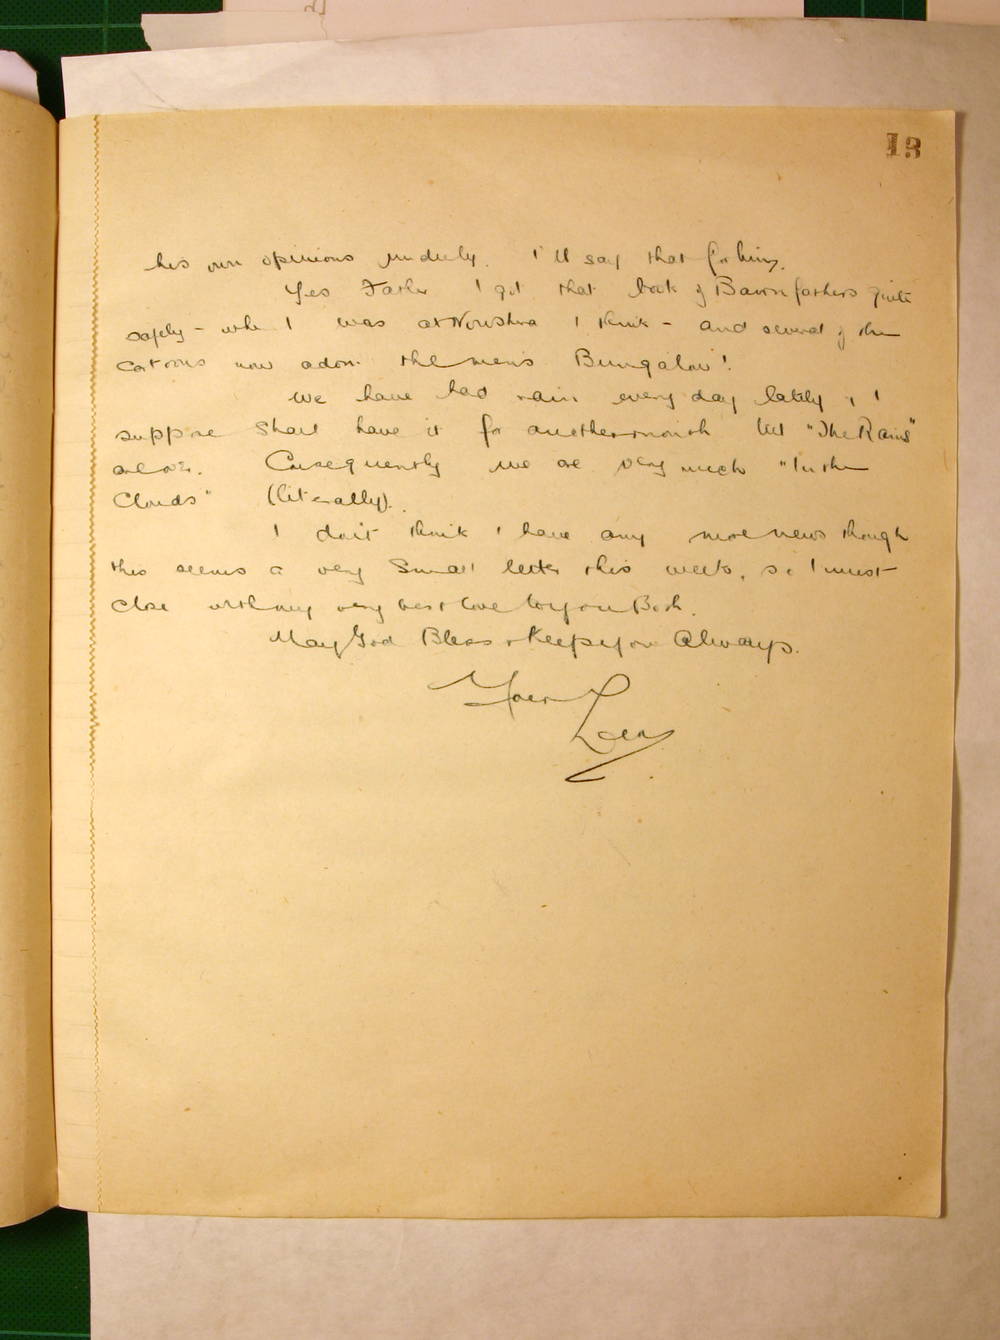 13
his own opinions unduly. I'll say that for him.
Yes Father I got that book of Bairnsfathers quite
safely - when I was at Nowshera I think - and several of the
cartoons now adorn the men's Bungalow!
We have had rain every day lately, & I
suppose shall have it for another month till "The Rains"
are over. Consequently we are very much "In the
Clouds" (literally).
I don't think I have any more news though
this seems a very small letter this week, so I must
close with my very best love to you Both.
May God Bless & Keep you Always.
Your